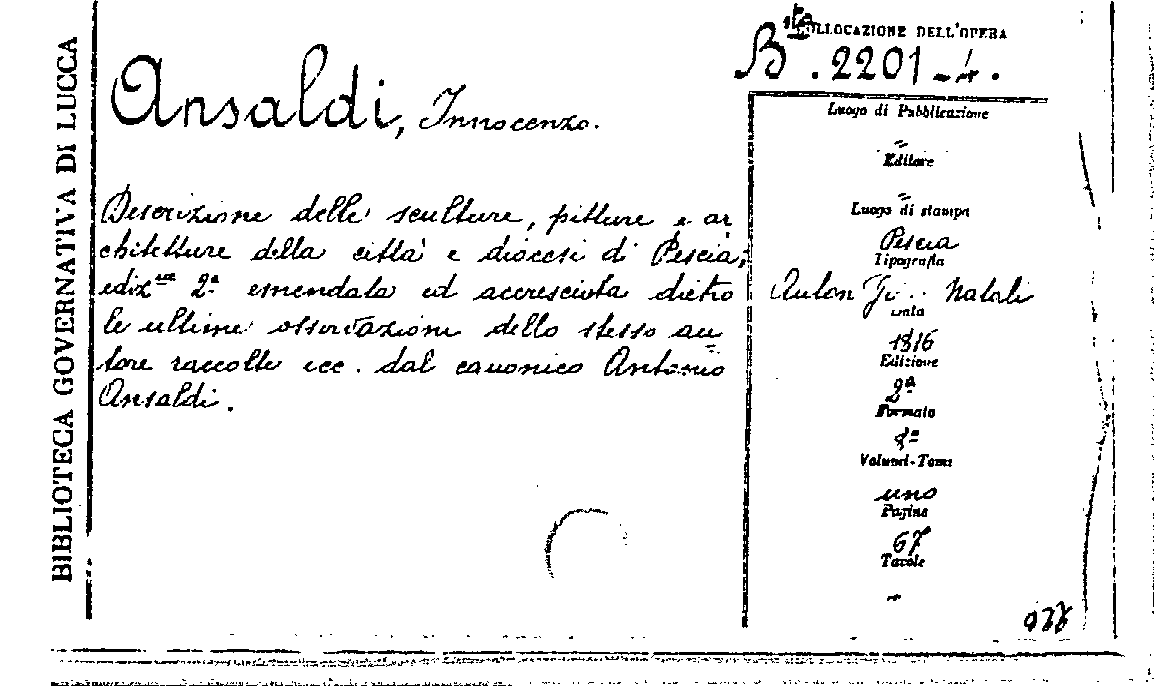 BIBLIOTECA GOVERNATIVA DI LUCCA
Ansaldi, Innocenzo.
Descrizione delle sculture, pitture e ar
chitetture della città e diocesi di Pescia;
ediz.ne 2a emendata ed accresciuta dietro
le ultime osservazioni dello stesso au
tore raccolte ecc. dal canonico Antonio
Ansaldi.
COLLOCAZIONE DELL'OPERA
B.sta 2201-4.
Luogo di Pubblicazione
=
Editore
=
Luogo di stampa
Pescia
Tipografia
Natali
Data
1816
Edizione
2a
Formato
8°
Volumi-Tomi
uno
Pagine
67
Tavole
-